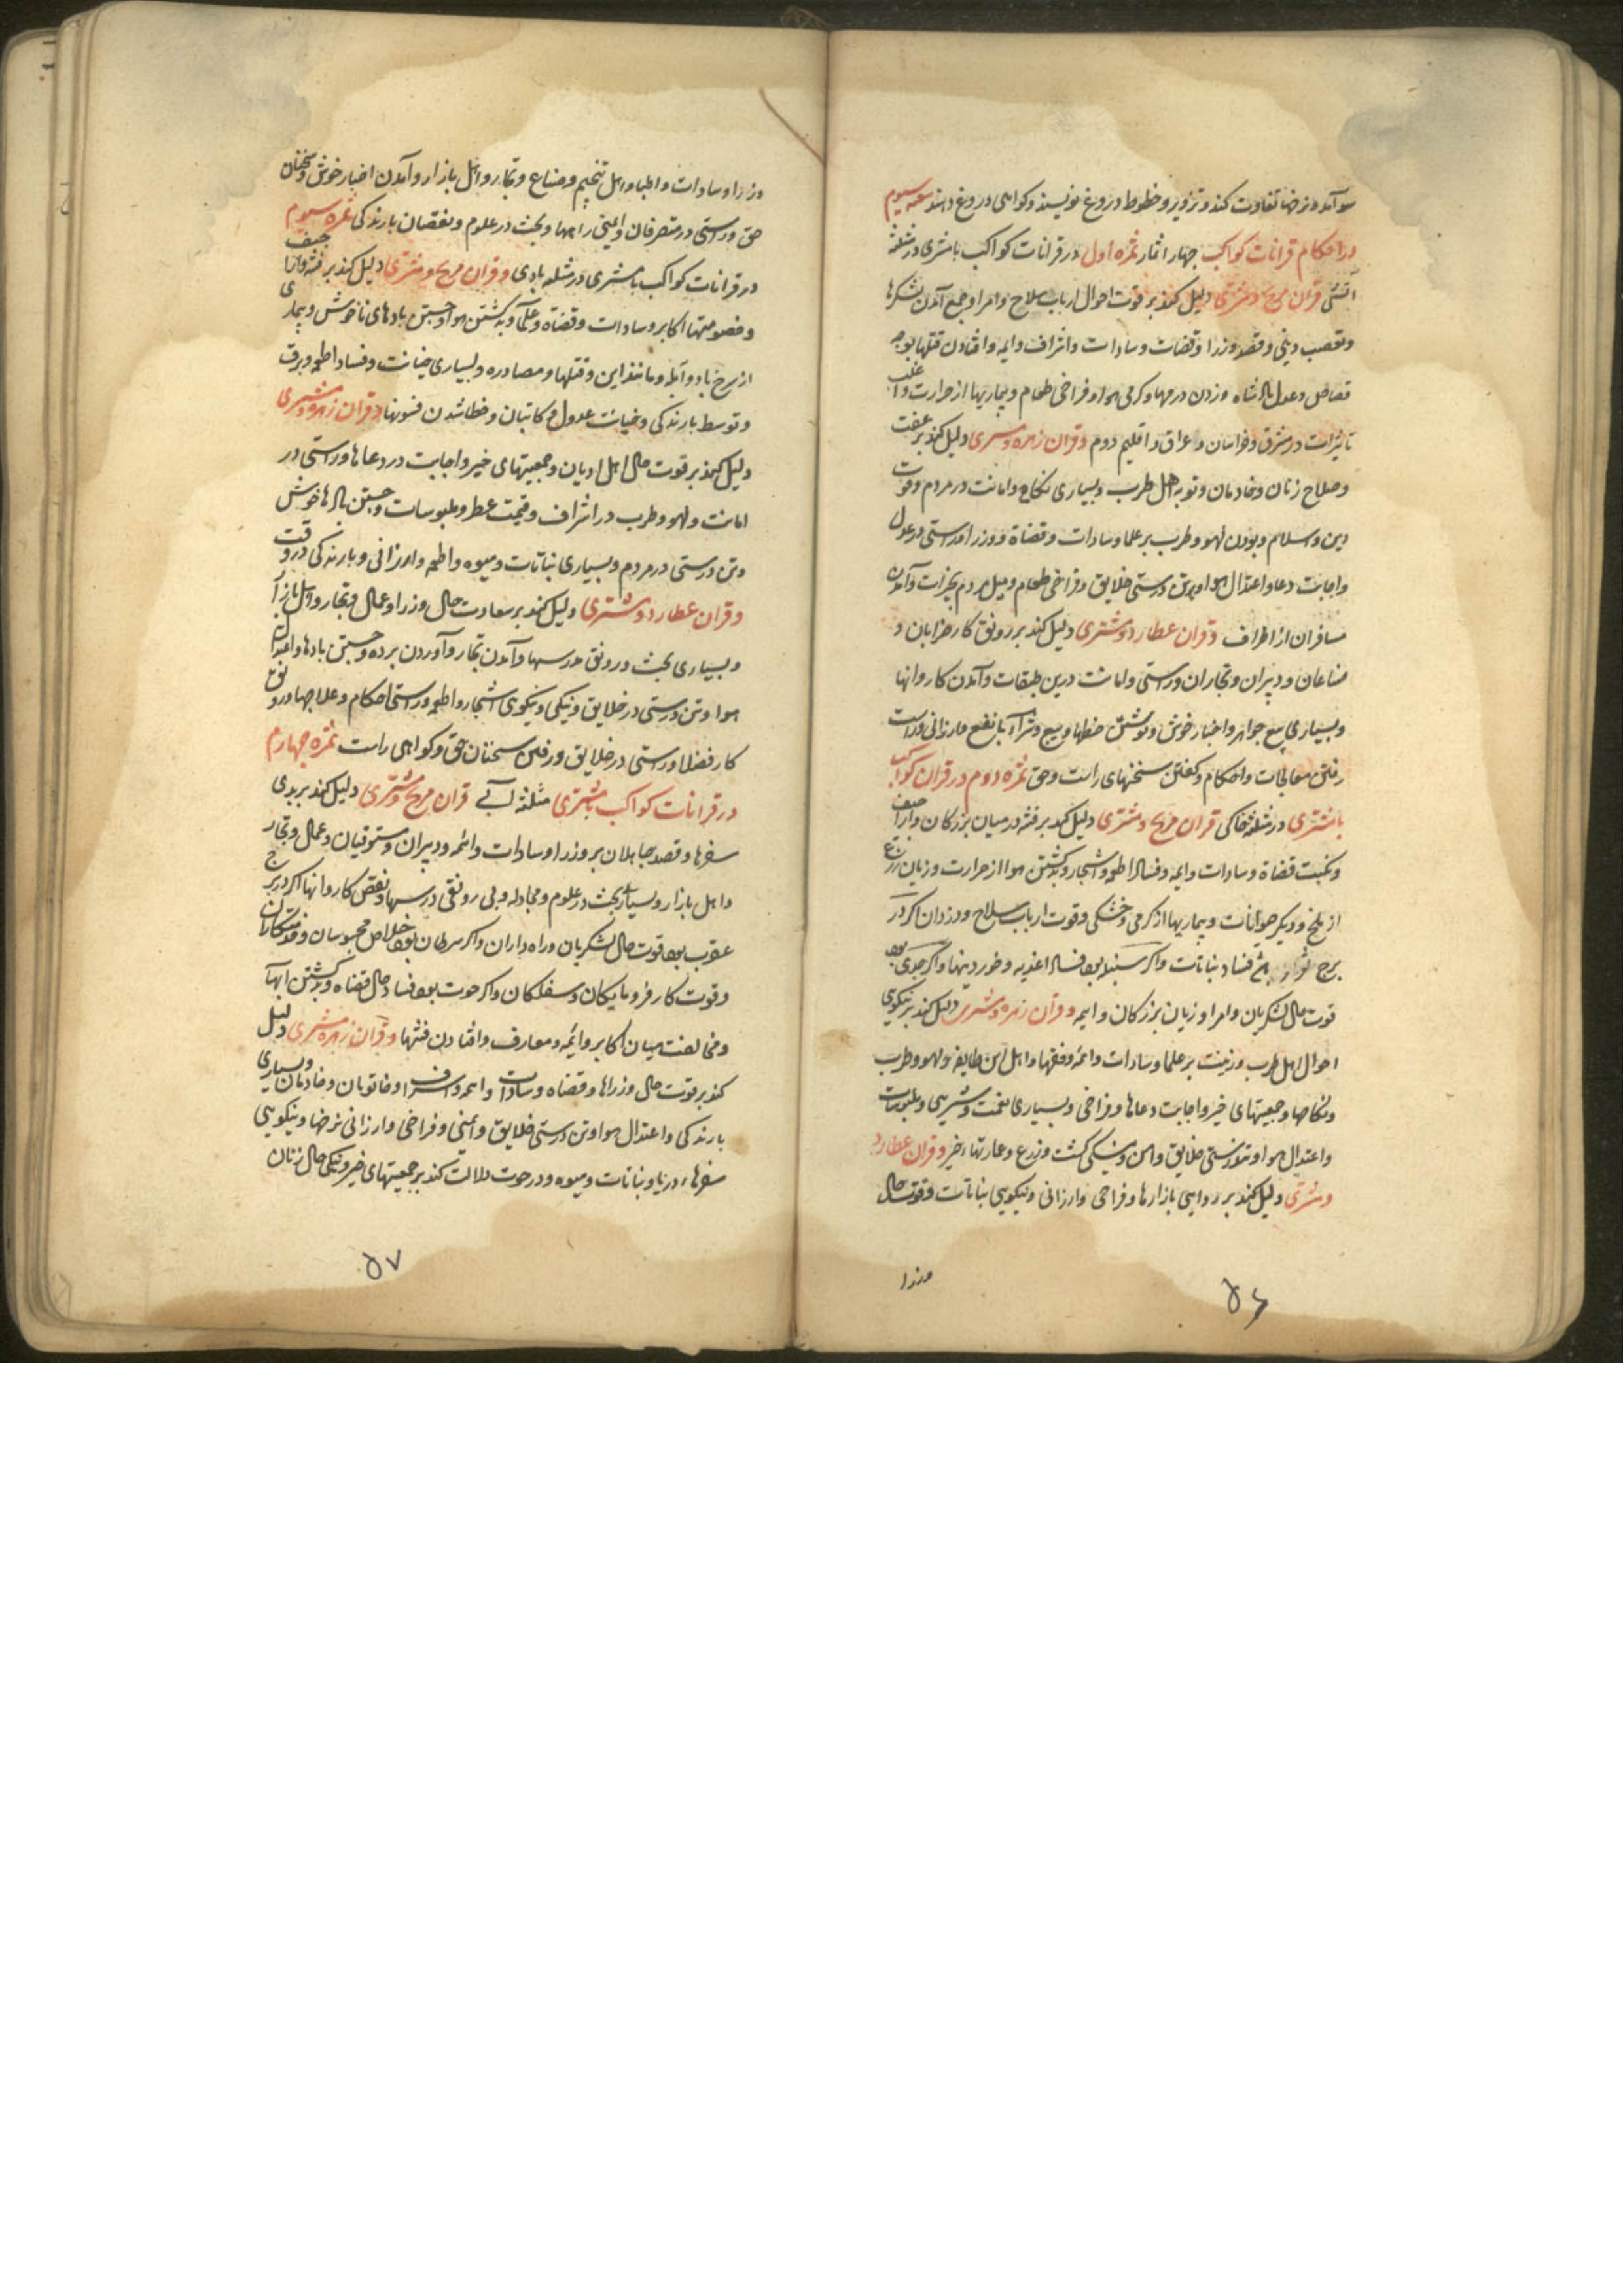 سو آمد و نرخها تفاوت کند و تزویر و خطوط دروغ نویسند و کواهی دروغ دهند شعبه سیوم
در احکام قرانات کواکب چهار اثمار ثمره اول در قرانات کواکب با مشتری در مثلثه
آتشی قران مریخ و مشتری دلیل کند بر قوت احوال ارباب سلاح و امرا و جمع آمدن لشکرها
و تعصب دینی و قصد وزرا و قضات و سادات و اشراف و ایمه و افتادن قتلها بوجه
قصاص و عدل پادشاه و زدن درمها و کرمی هوا و فراخی طعام و بیماریها از حرارت و اغلب
تاثیرات در مشرق و خراسان و عراق و اقلیم دوم و قران زهره و مشتری دلیل کند بر عفت
و صلاح زنان و خادمان و توبه اهل طرب و بسیاری نکاح و امانت در مردم و قوت
دین و اسلام و بودن لهو و طرب بر علما و سادات و قضاة و وزرا و راستی در عدول
و اجابت دعا و اعتدال هوا و تن درستی خلایق و فراخی طعام و میل مردم بخیرات و آمدن
مسافران از اطراف و قران عطارد و مشتری دلیل کند بر رونق کار خزابان و
صناعان و دبیران و تجاران و راستی و امانت درین طبقات و آمدن کاروانها
و بسیاری بیع جواهر و اخبار خوش و نوشتن خطها و بیع و شرآء با نفع و ارزانی و راست
رفتن معالجات و احکام و کفتن سخنهای راست و حق ثمره دوم در قران کواکب
با مشتری در مثلثه خاکی قران مریخ و مشتری دلیل کند بر فتنه در میان بزرکان و اراجیف
و نکبت قضاة و سادات و ایمه و فساد اطعمه و اشجار و بکشتن هوا از حرارت و زیان زرع
از ملخ و دیکر حیوانات و بیماریها از کرمی و خشکی و قوت ارباب سلاح و دزدان اکر در
برج ثور فساد نباتات و اکر سنبله بود فساد اغذیه و خوردنیها و اکر جدی بود
قوت حال لشکریان و امرا و زیان بزرکان و ایمه و قران زهره و مشتری دلیل کند بر نیکویی
احوال اهل طرب و زینت بر علما و سادات و ائمه و فقها و اهل این طایفه و لهو و طرب
و نکاحها و جمعیتهای خیر و اجابت دعاها و فراخی و بسیاری نعمت و شیرینی و ملبوسات
و اعتدال هوا و تندرستی خلایق و امن و نیکی کشت و زرع و عمارتهاء خیر و قران عطارد
و مشتری دلیل کند بر روایی بازارها و فراخی و ارزانی و نیکویی نباتات و قوت حال
وزرا
۵۶
وزرا و سادات و اطبا و اهل تنجیم و صناع و تجار و اهل بازار و آمدن اخبار خوش و سخنان
حق و راستی در متصرفان و ایمنی راهها و بحث در علوم و نقصان بارندکی ثمره سیوم
در قرانات کواکب با مشتری در مثلثه بادی و قران مریخ و مشتری دلیل کند بر فتنه و اراجیف
و خصومتها اکابر و سادات و قضاة و علمآ و بدکشتن هوا و جستن بادهای ناخوش و بیماری
از سرخ باد و آبله و مانند این و قتلها و مصادره و بسیاری خیانت و فساد اطعمه و برق
و توسط بارندکی و خیانت عدول و کاتبان و خطا شدن فتویها و قران زهره و مشتری
دلیل کند بر قوت حال اهل ادیان و جمعیتهای خیر و اجابت در دعاها و راستی در
امانت و لهو و طرب در اشراف و قیمت عطر و ملبوسات و جستن بادها خوش
و تن درستی در مردم و بسیاری نباتات و میوه و اطعمه و ارزانی و بارندکی در وقت
و قران عطارد و مشتری دلیل کند بر سعادت حال وزرا و عمال و تجار و اهل بازار
و بسیاری بحث و رونق مدرسها و آمدن تجار و آوردن برده و جستن بادها و اعتدال
هوا و تن درستی در خلایق و نیکی و نیکوی اشجار و اطعمه و راستی احکام و علاجها و رونق
کار فضلا و راستی در خلایق و رفتن سخنان حق و کواهی راست ثمره چهارم
در قرانات کواکب با مشتری مثلثه آبی قران مریخ و مشتری دلیل کند بر بدی
سفرها و قصد جاهلان بر وزرا و سادات و ائمه و دبیران و مستوفیان و عمال و تجار
و اهل بازار و بسیاری بحث در علوم و مجادله و بی رونقی درسها و نقص کاروانها اکر در برج
عقرب بود قوت حال لشکریان و راه داران و اکر سرطان بود خلاص محبوسان و قوت
و قوت کار فرومایکان و سفلکان و اکر حوت بود فساد حال قضاة و بدکشتن ابهآ
و مخالفت میان اکابر و ائمه و معارف و افتادن فتنها و قران زهره و مشتری دلیل
کند بر قوت حال وزراها و قضاه و سادات و ائمه و اشراف و خاتونان و خادمان و بسیاری
بارندکی و اعتدال هوا و تن درستی خلایق و ایمنی و فراخی و ارزانی نرخها و نیکویی
سفرهاء دریا و نباتات و میوه و در حوت دلالت کند بر جمعیتهای خیر و نیکی حال زنان
۵۷